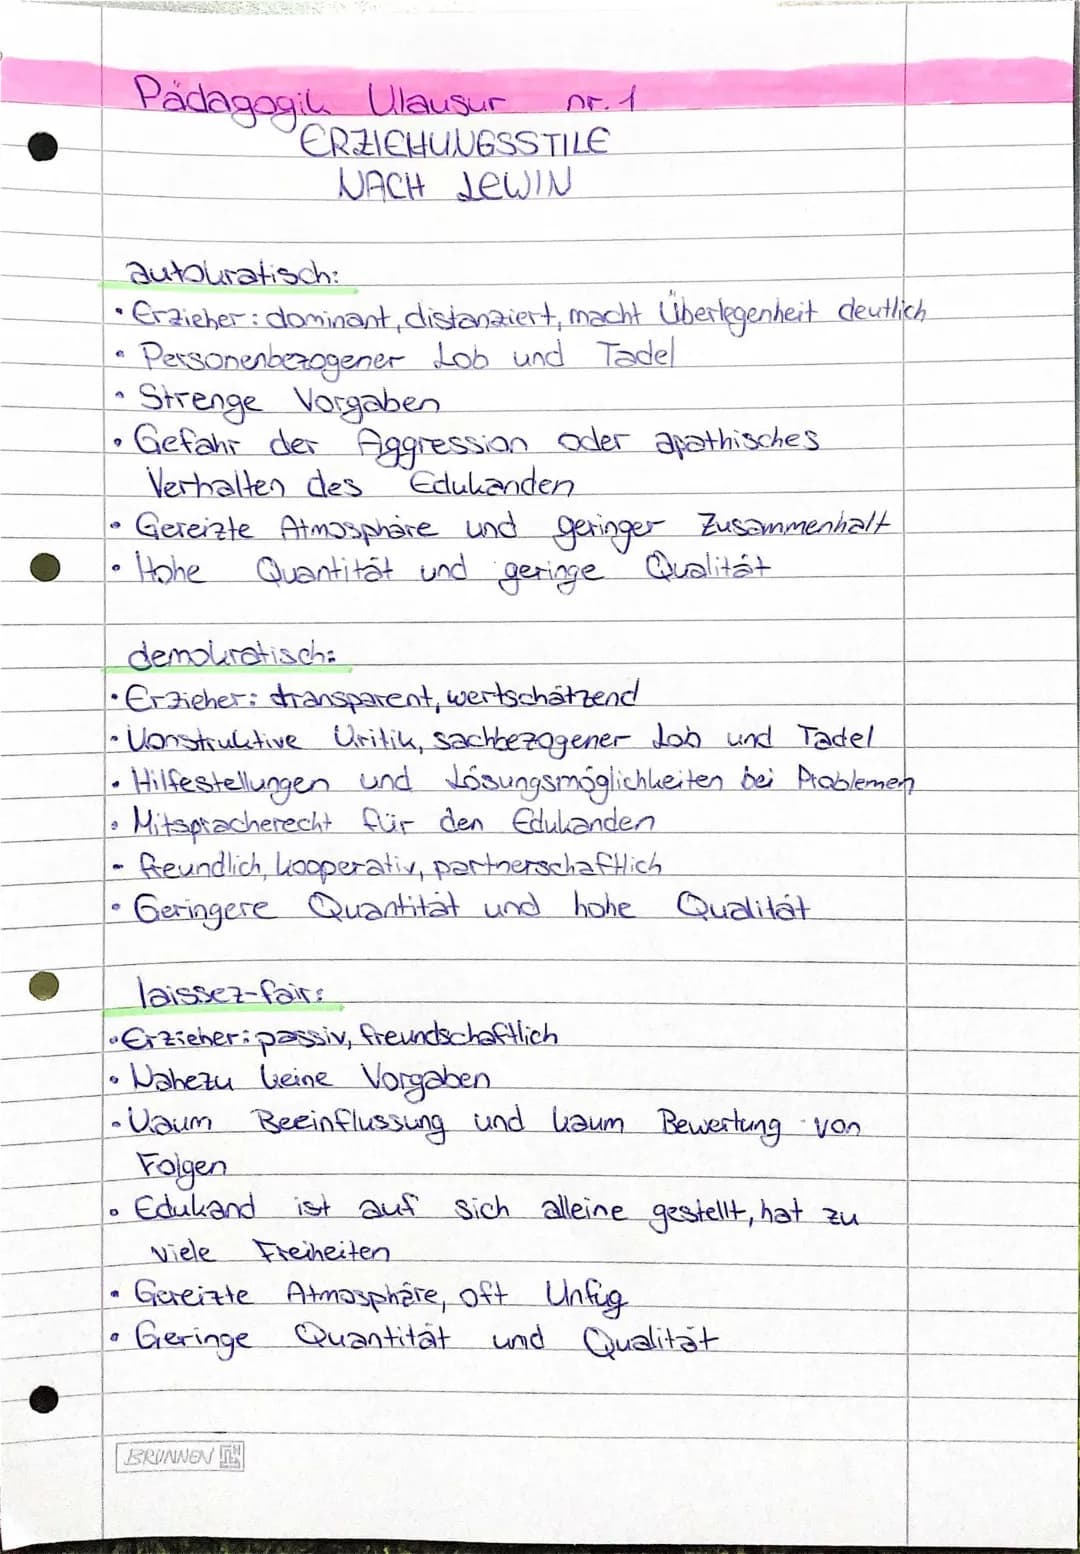 Pädagogik Klausur nr. 1
ERZIEHUNGSSTILE
NACH LEWIN
autokratisch:
• Erzieher: dominant, distanziert, macht Überlegenheit deutlich
• Personenbezogener Lob und Tadel
• Strenge Vorgaben
• Gefahr der Aggression oder apathisches
Verhalten des Edukanden
• Gereizte Atmosphäre und geringer Zusammenhalt
• Hohe Quantität und geringe Qualität
demokratisch:
• Erzieher: transparent, wertschätzend
• Konstruktive Kritik, sachbezogener Lob und Tadel
• Hilfestellungen und Lösungsmöglichkeiten bei Problemen
• Mitspracherecht für den Edukanden
• freundlich, kooperativ, partnerschaftlich
• Geringere Quantität und hohe Qualität
laissez-fair:
• Erzieher: passiv, freundschaftlich
• Nahezu keine Vorgaben
• Kaum Beeinflussung und kaum Bewertung von
Folgen
• Edukand ist auf sich alleine gestellt, hat zu
viele Freiheiten
• Gereizte Atmosphäre, oft Unfug
• Geringe Quantität und Qualität
BRUNNEN